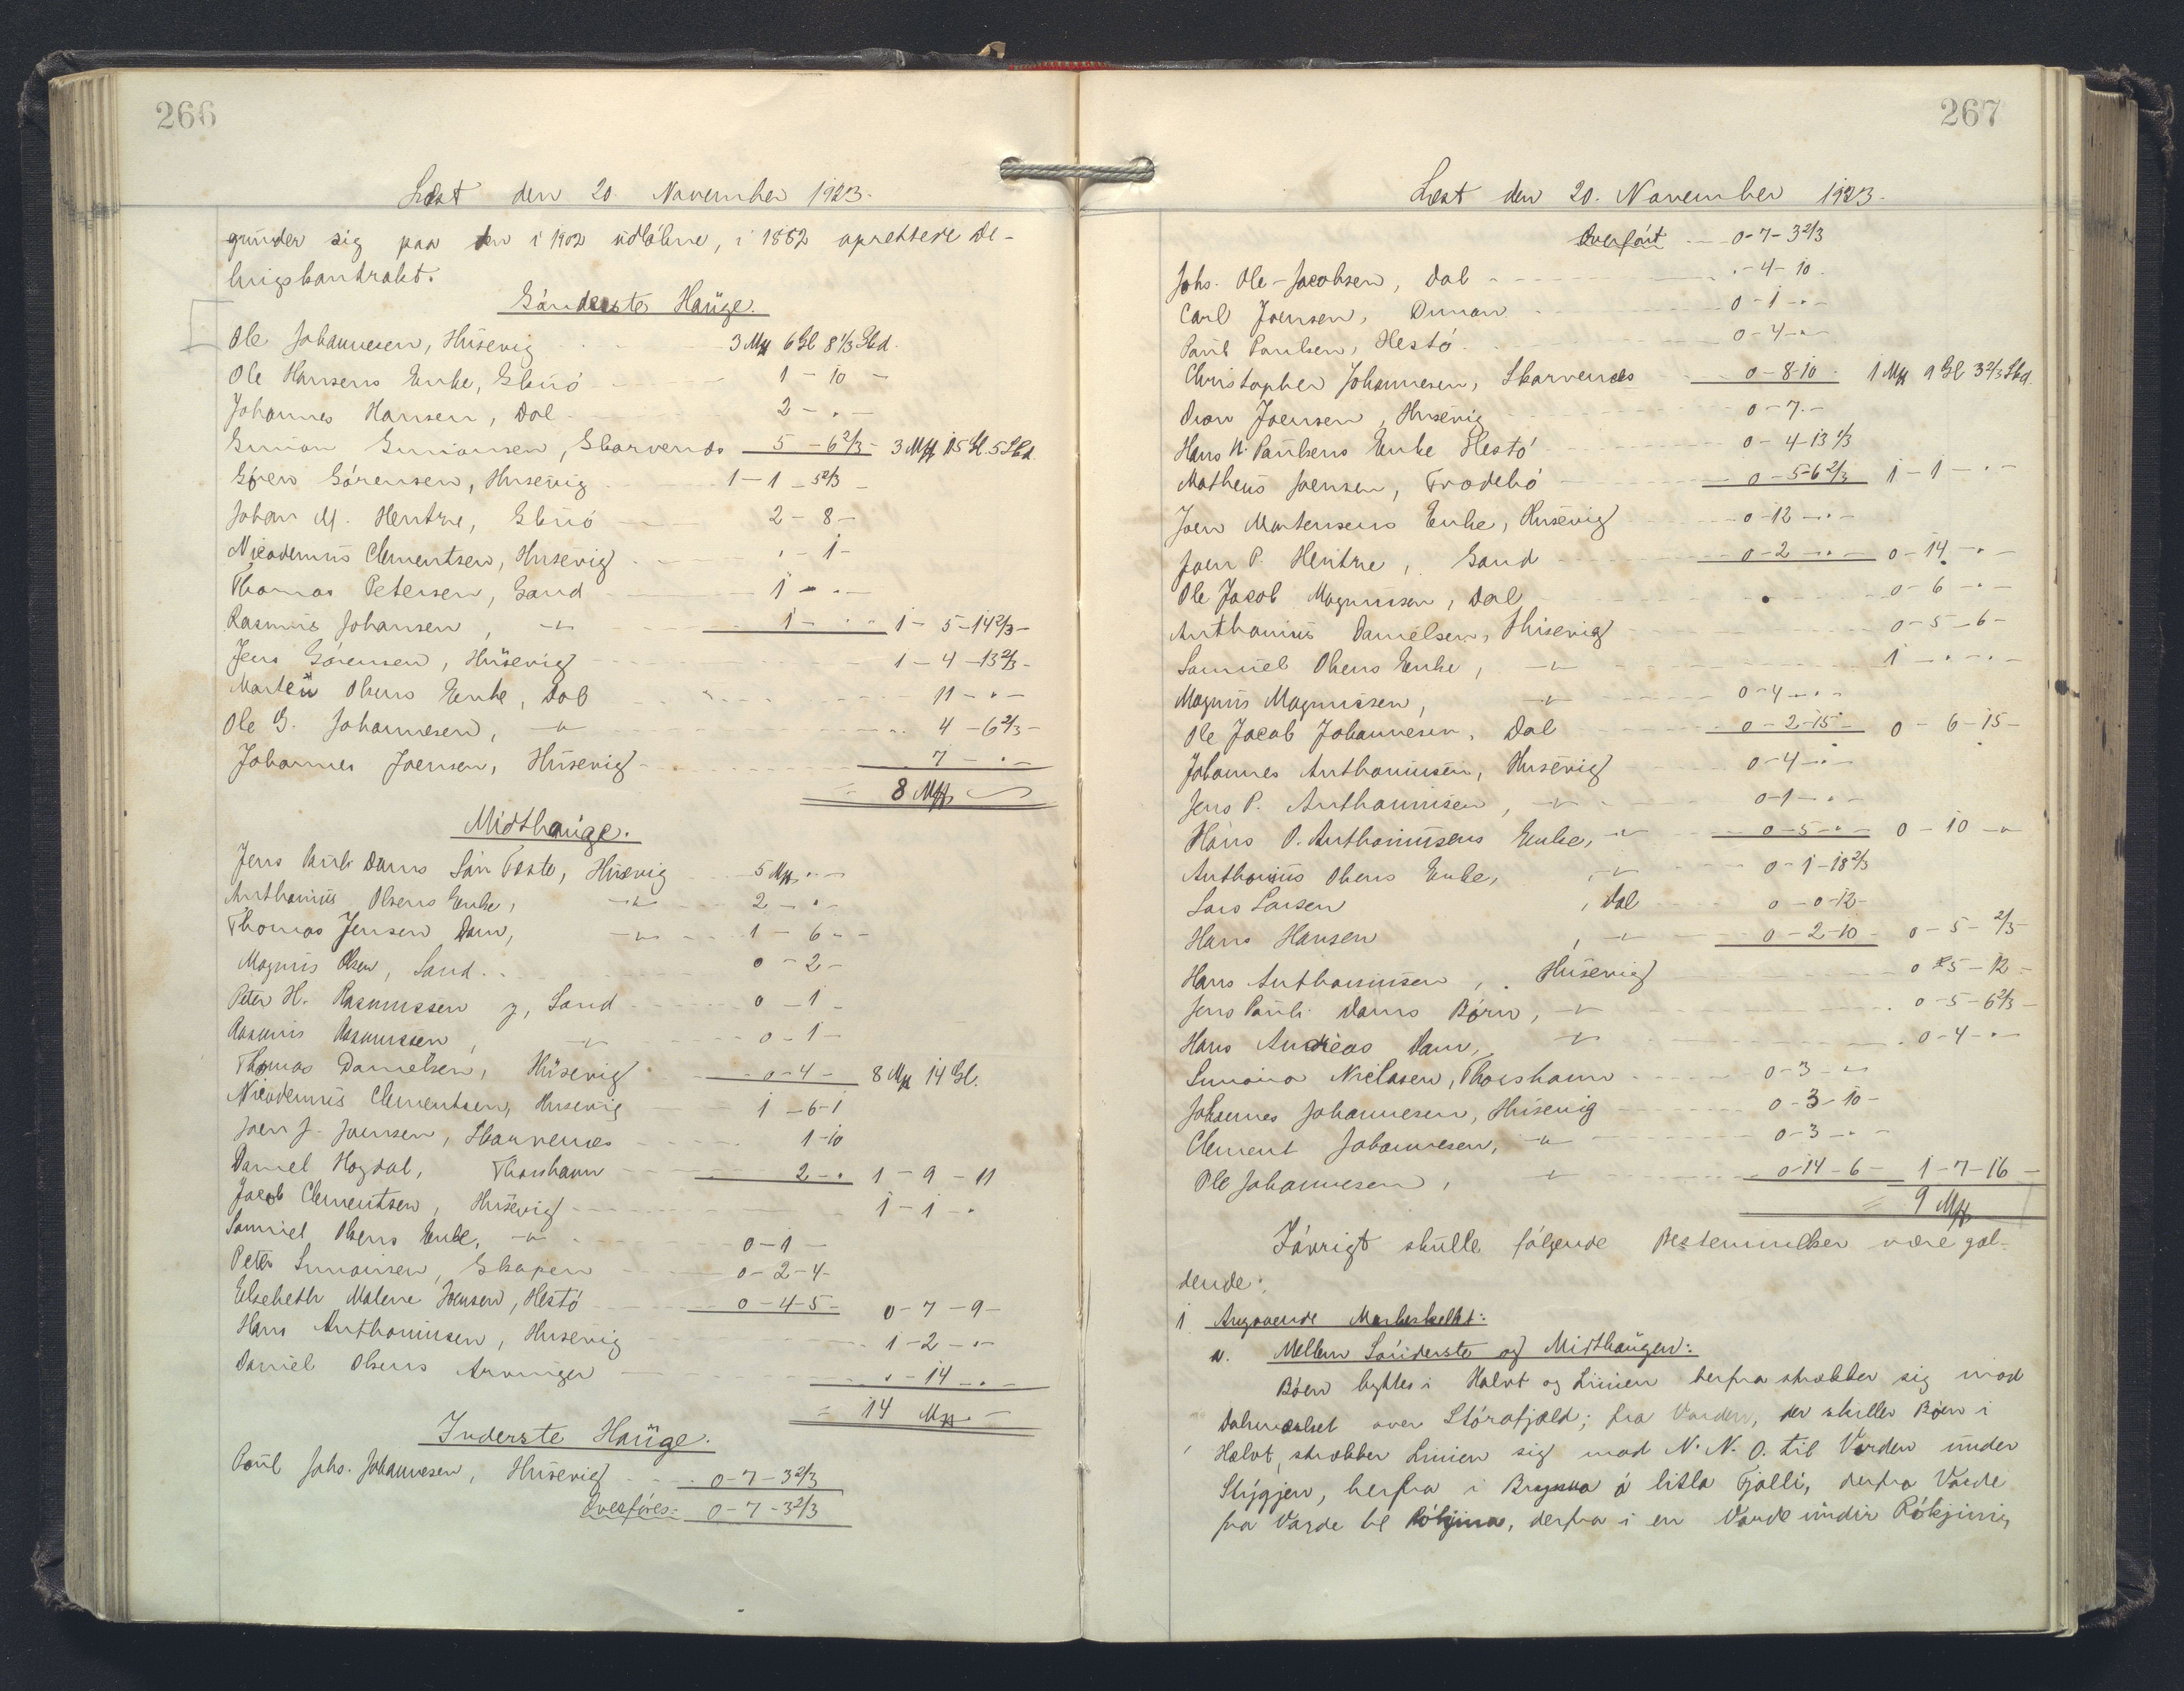 266
Læst den 20. November 1923.
grunder sig paa den i 1902 udløbne, i 1882 oprettede De-
lingskontrakt.
Sønderste Hauge.
Ole Johannesen, Husevig 3 Mk 6 Gl 8 1/3 Skd.
Ole Hansens Enke, Skuø 1 - 10 -
Johannes Hansen, Dal 2 - . -
Simon Simonsen, Skarvenæs 5 - 6 2/3 - 3 Mk 15 Gl. 5 Skd.
Søren Sørensen, Husevig 1 - 1 - 5 2/3 -
Johan M. Hentze, Skuø 2 - 8 -
Nicodemus Clementsen, Husevig . - 1 -
Thomas Petersen, Sand 1 - . -
Rasmus Johansen, -"- 1 - . - 1 - 5 - 14 2/3 -
Jens Sørensen, Husevig 1 - 4 - 13 2/3 -
Morten Olsens Enke, Dal 11 - . -
Ole G. Johannesen, -"- 4 - 6 2/3 -
Johannes Joensen, Husevig 7 - . -
= 8 Mk
Midthauge.
Jens Pauli Dams Søn Feste, Husevig 5 Mk . -
Anthonius Olsens Enke, -"- 2 - . -
Thomas Jensen Dam, -"- 1 - 6 - -
Magnus Olsen, Sand 0 - 2 -
Peter H. Rasmussen y, Sand 0 - 1 -
Rasmus Rasmussen, -"- 0 - 1 -
Thomas Danielsen, Husevig 0 - 4 - 8 Mk 14 Gl.
Nicodemus Clementsen, Husevig 1 - 6 - 1
Joen J. Joensen, Skarvenæs 1 - 10
Daniel Høgdal, Thorshavn 2 - . 1 - 9 - 11
Jacob Clementsen, Husevig 1 - 1 - .
Samuel Olsens Enke, -"- 0 - 1 -
Peter Simonsen, Skopen 0 - 2 - 4 -
Elsebeth Malene Joensen, Hestø 0 - 4 - 5 - 0 - 7 - 9 -
Hans Anthoniusen, Husevig 1 - 2 - . -
Daniel Olsens Arvinger . - 14 - . -
= 14 Mk . -
Inderste Hauge.
Poul Johs. Johannesen, Husevig 0 - 7 - 3 2/3
Overføres: 0 - 7 - 3 2/3
267
Læst den 20. November 1923.
Overført 0 - 7 - 3 2/3
Johs. Ole-Jacobsen, Dal . - 4 - 10 -
Carl Joensen, 0 - 1 - . -
Paul Poulsen, Hestø 0 - 4 - . -
Christopher Johannesen, Skarvenæs 0 - 8 - 10 - 1 Mk 9 Gl 3 2/3 Skd.
Joensen, Husevig 0 - 7 - . -
Hans N. Paulsens Enke Hestø 0 - 4 - 13 1/3
Matheus Joensen, Frodebø 0 - 5 - 6 2/3 1 - 1 - . -
Joen Mortensens Enke, Husevig 0 - 12 - . -
Joen P. Hentze, Sand 0 - 2 - . - 0 - 14 - . -
Ole Jacob Magnussen, Dal 0 - 6 - . -
Anthonius Danielsen, Husevig 0 - 5 - 6 -
Samuel Olsens Enke, -"- 1 - . - . -
Magnus Magnussen, -"- 0 - 4 - . -
Ole Jacob Johannesen, Dal 0 - 2 - 15 - 0 - 6 - 15 -
Johannes Anthoniusen, Husevig 0 - 4 - . -
Jens P. Anthoniusen, -"- 0 - 1 - . -
Hans D. Anthoniusens Enke, -"- 0 - 5 - . - 0 - 10 - .
Anthonius Olsens Enke, -"- 0 - 1 - 18 2/3
Lars Larsen, Dal 0 - 0 - 12 -
Hans Hansen, -"- 0 - 2 - 10 - 0 - 5 - 2/3 -
Hans Anthoniusen, Husevig 0 - 5 - 12 -
Jens Pauli Dams Børn, -"- 0 - 5 - 6 2/3 -
Hans Andreas Dam, -"- 0 - 4 - . -
Simona Niclasen, Thorshavn 0 - 3 - . -
Johannes Johannesen, Husevig 0 - 3 - 10 -
Clement Johannesen, -"- 0 - 3 - . -
Ole Johannesen, -"- 0 - 14 - 6 - 1 - 7 - 16 -
= 9 Mk
Iøvrigt skulle følgende Bestemmelser være gæl-
dende:
1 Angaaende Markeskellet:
a. Mellem Sønderste og Midthaugen:
Bøen byttes i Halvt og Linien herfra strækker sig mod
Dalmarket over Stórafjæld; fra Varden, der skiller Bøen i
Halvt, strækker Linien sig mod N. N. O. til Varden under
Stýgjen, herfra i á litla Fjalli, derfra Varde
fra Varde til Rókjina, derfra i en Varde undir Rókjini,